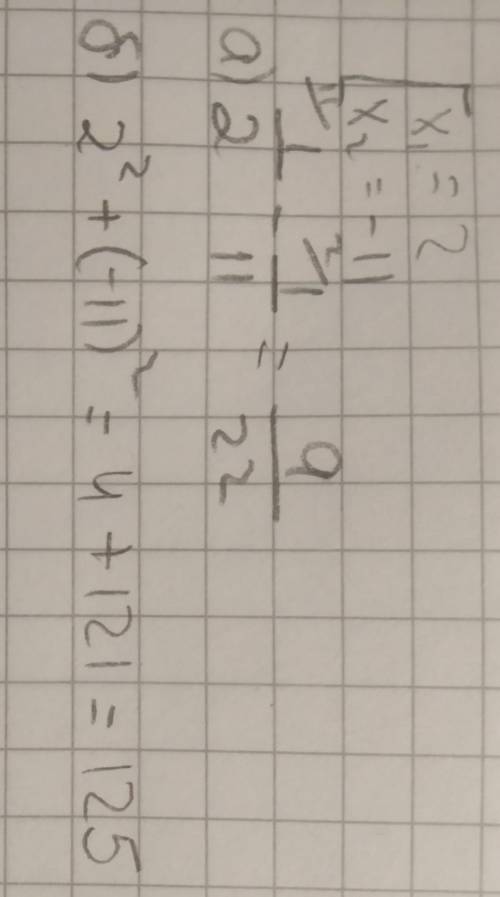 x₁ = 2
x₂ = -11
а) 1/2 - 1/11 = 9/22
б) 2² + (-11)² = 4 + 121 = 125